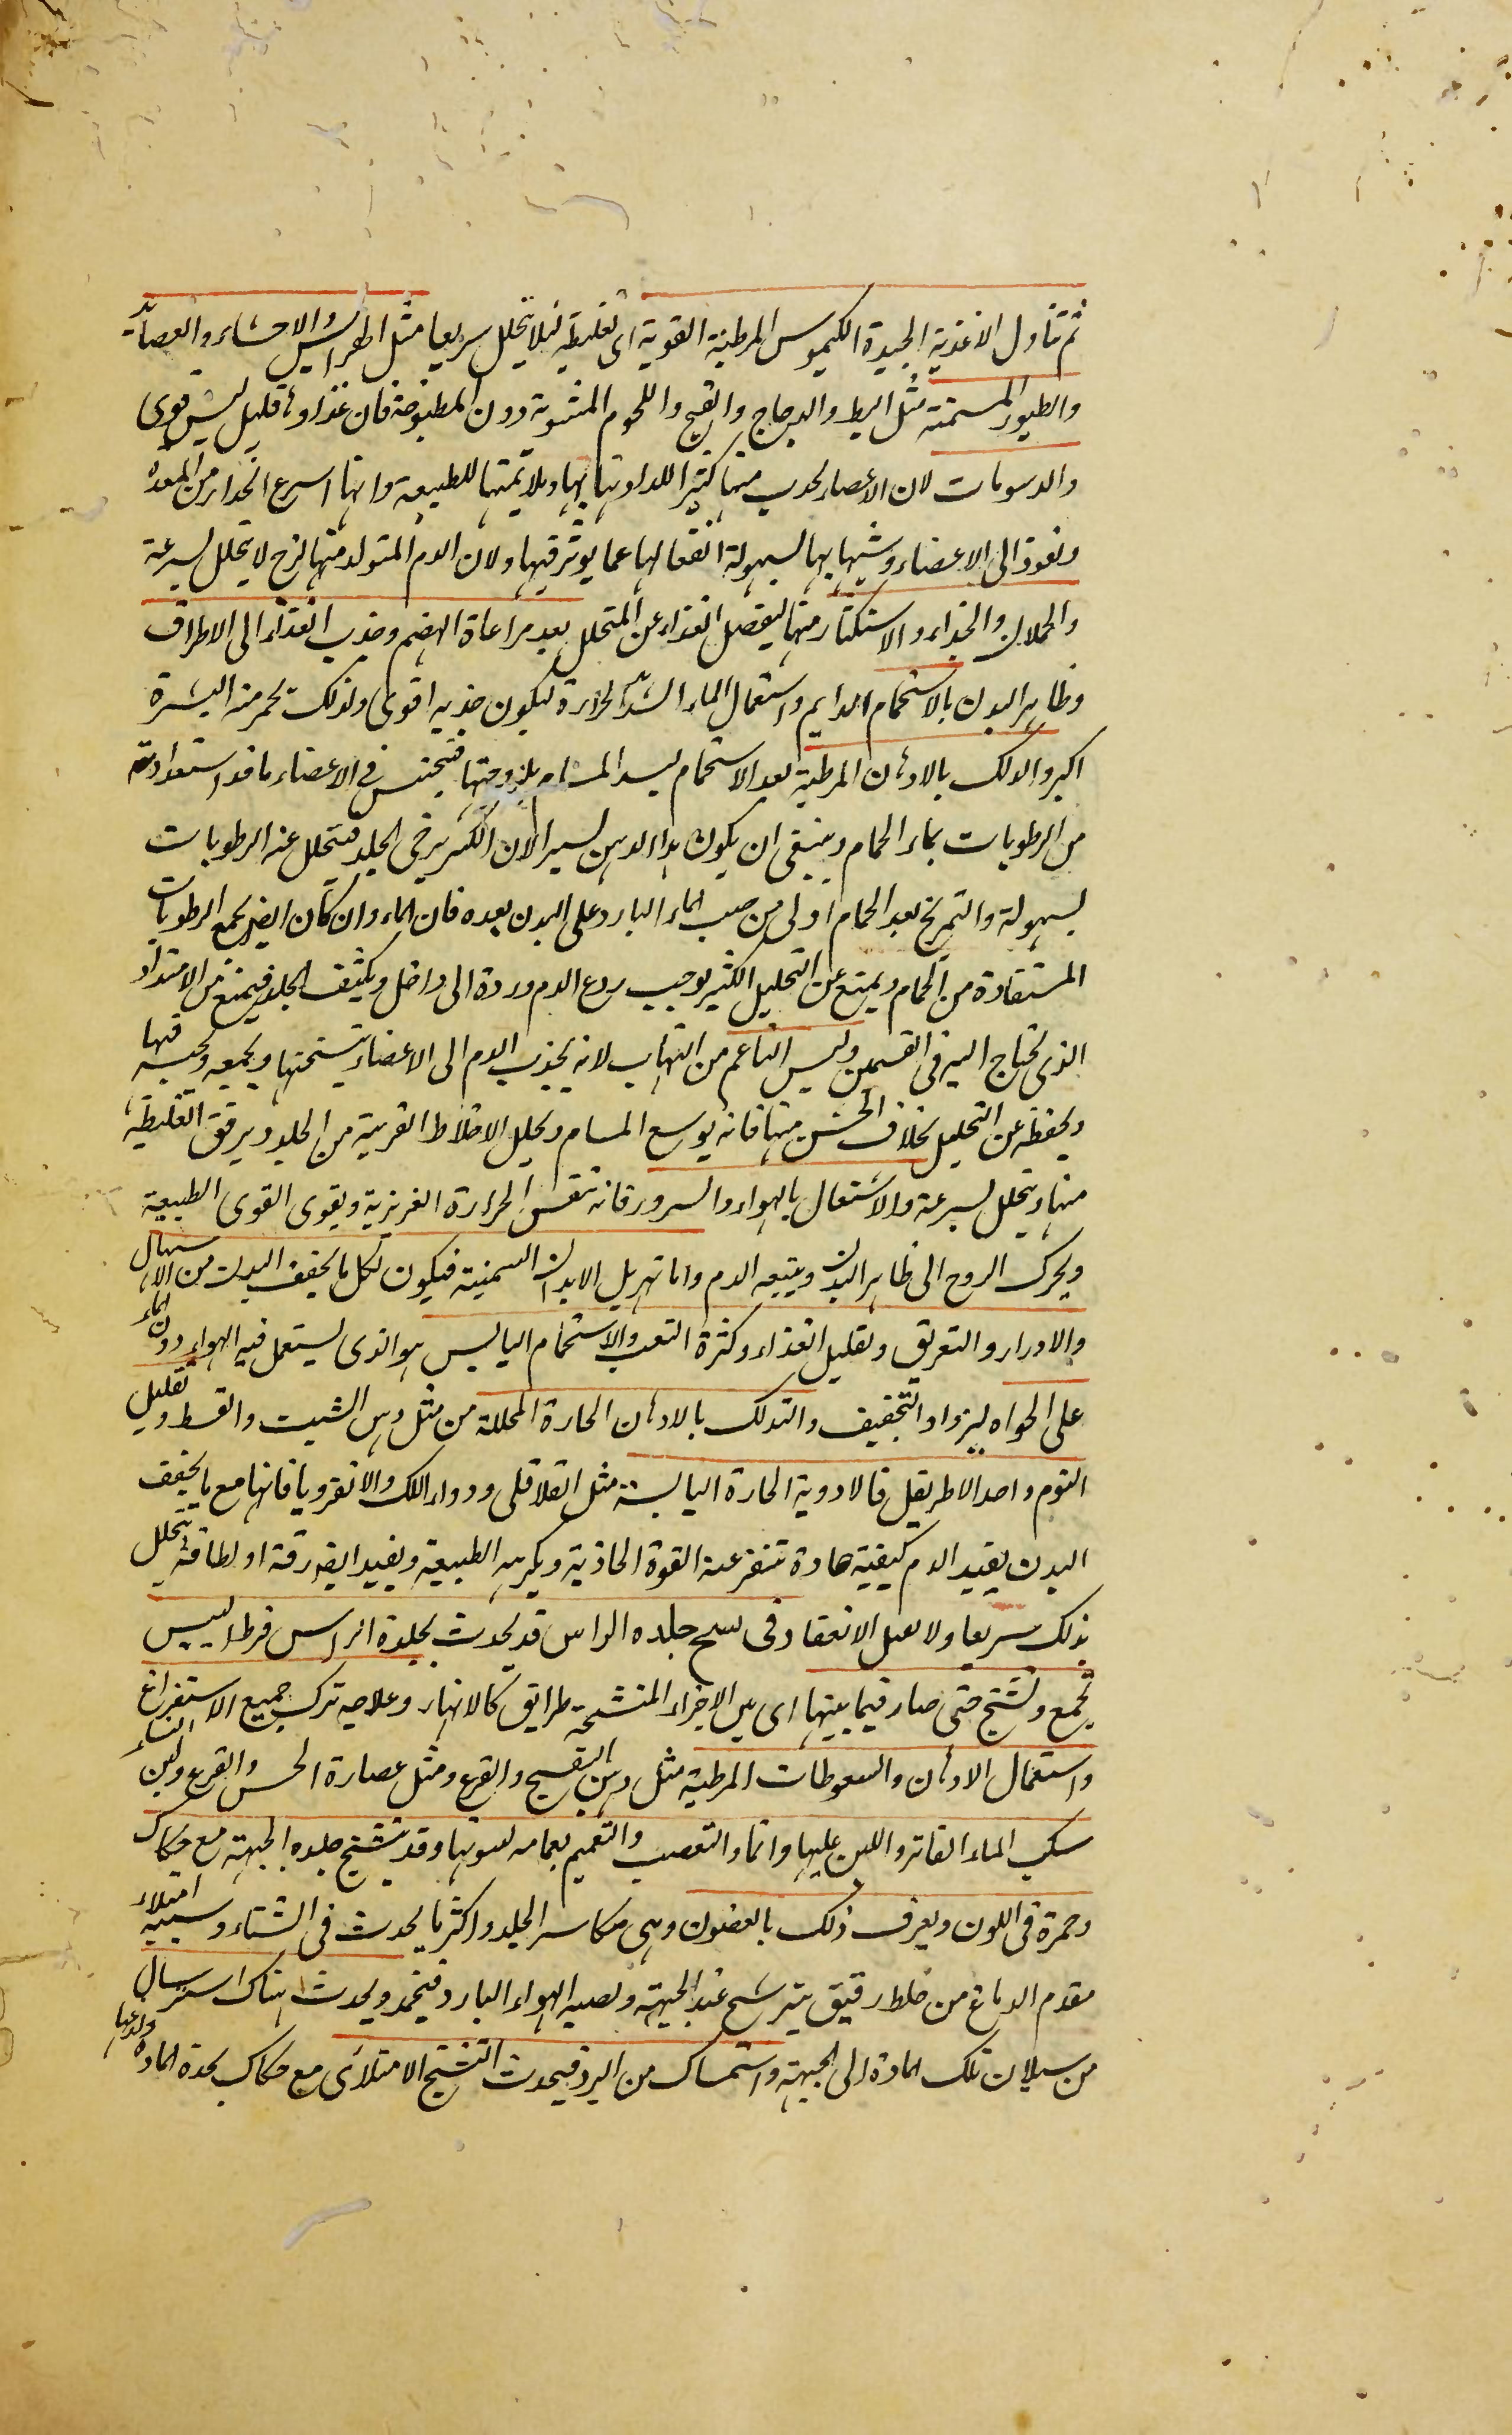 ثم تناول الاغذية الجيدة الكيموس المرطبة القوية اى الغليظة لئلا يتحلل سريعا مثل الهرايس والاحشاء والعصائد
والطيور المسمنة مثل البط والدجاج والقبج واللحوم المشوية دون المطبوخة فان غذاوها قليل ليس قوى
والدسومات لان الاعضاء تجذب منها كثيرا للداونتها بها وملايمتها للطبيعة وانها اسرع انحدار من المعدة
ونفوذ الى الاعضاء وشبها بها لسهولة انفعالها عما يوثر فيها ولان الدم المتولد منها لزج لا يتحلل بسرعة
والحملان والجداء والاستكثار منها ليفضل الغذاء عن المتحلل بعد مراعاة الهضم وجذب الغذاء الى الاطراف
وظاهر البدن بالاستحمام الدايم واستعمال الماء الشديد الحرارة ليكون جذبه اقوى ولذلك تحمر منه البشرة
اكبر والدلك بالادهان المرطبة بعد الاستحمام ليسد المسام بلزوجتها فيحتبس فى الاعضاء ما قد استفادته
من الرطوبات بماء الحمام وينبغى ان يكون هذا الدهن يسيرا لان الكثير يرخى الجلد فيتحلل عنه الرطوبات
بسهولة والتمريخ بعد الحمام اولى من صب الماء البارد على البدن بعده فان الماء وان كان ايضا يجمع الرطوبات
المستفادة من الحمام ويمنع عن التحليل الكثير يوجب ردع الدم ورده الى داخل ويكثف الجلد فيمنع من الامتداد
الذى يحتاج اليه فى التسمين ولبس الناعم من الثياب لانه يجذب الدم الى الاعضاء بتسخينها ويجمعه ويحبسه فيها
ويحفظه عن التحليل بخلاف الخشن منها فانه يوسع المسام ويحلل الاخلاط القريبة من الجلد ويرقق الغليظة
منها ويتحلل بسرعة والاشتغال باللهو والسرور فانه تنعش الحرارة الغريزية ويقوى القوى الطبيعية
ويحرك الروح الى ظاهر البدن ويتبعه الدم واما تهزيل الابدان السمينة فيكون بكل ما يجفف البدن من الاسهال
والادرار والتعريق وتقليل الغذاء وكثرة التعب والاستحمام اليابس هو الذى يستعمل فيه الهواء دون الماء
على الخواء ليزداد التجفيف والتدلك بالادهان الحارة المحللة من مثل دهن الشبت والقسط وتقليل
النوم واخذ الاطريفل فالادوية الحارة اليابسة مثل القلاقلى ودواء اللك والانقرويا فانها مع ما يجفف
البدن يفيد الدم كيفية حادة تنفر عنه القوة الجاذبة ويكرهه الطبيعة ويفيد ايضا رقة او لطافة يتحلل
بذلك سريعا ولا يقبل الانعقاد فى تشنج جلدة الراس قد يحدث بجلدة الراس فرط اليبس
تجمع وتشنج حتى صار فيما بينها اى بين الاجزاء المتشنجة طرايق كالانهار وعلاجه ترك جميع الاستفراغ
واستعمال الادهان والسعوطات المرطبة مثل دهن البنفسج والقرع ومثل عصارة الخس والقرع ولبن النساء
سكب الماء الفاتر واللبن عليها واتما والتعصب والتعميم بعمامة يسويها وقد تشنج جلدة الجبهة مع حكاك
وحمرة فى اللون ويعرف ذلك بالغضون وهى مكاسر الجلد واكثر ما يحدث فى الشتاء وسببه امتلاء
مقدم الدماغ من خلط رقيق يترشح عند الجبهة ويصيبه الهواء البارد فيجمد ويحدث هناك استرسال
من سيلان تلك المادة الى الجبهة واستمساك من البرد فيحدث التشنج الامتلائى مع حكاك لحدة المادة ولذعها